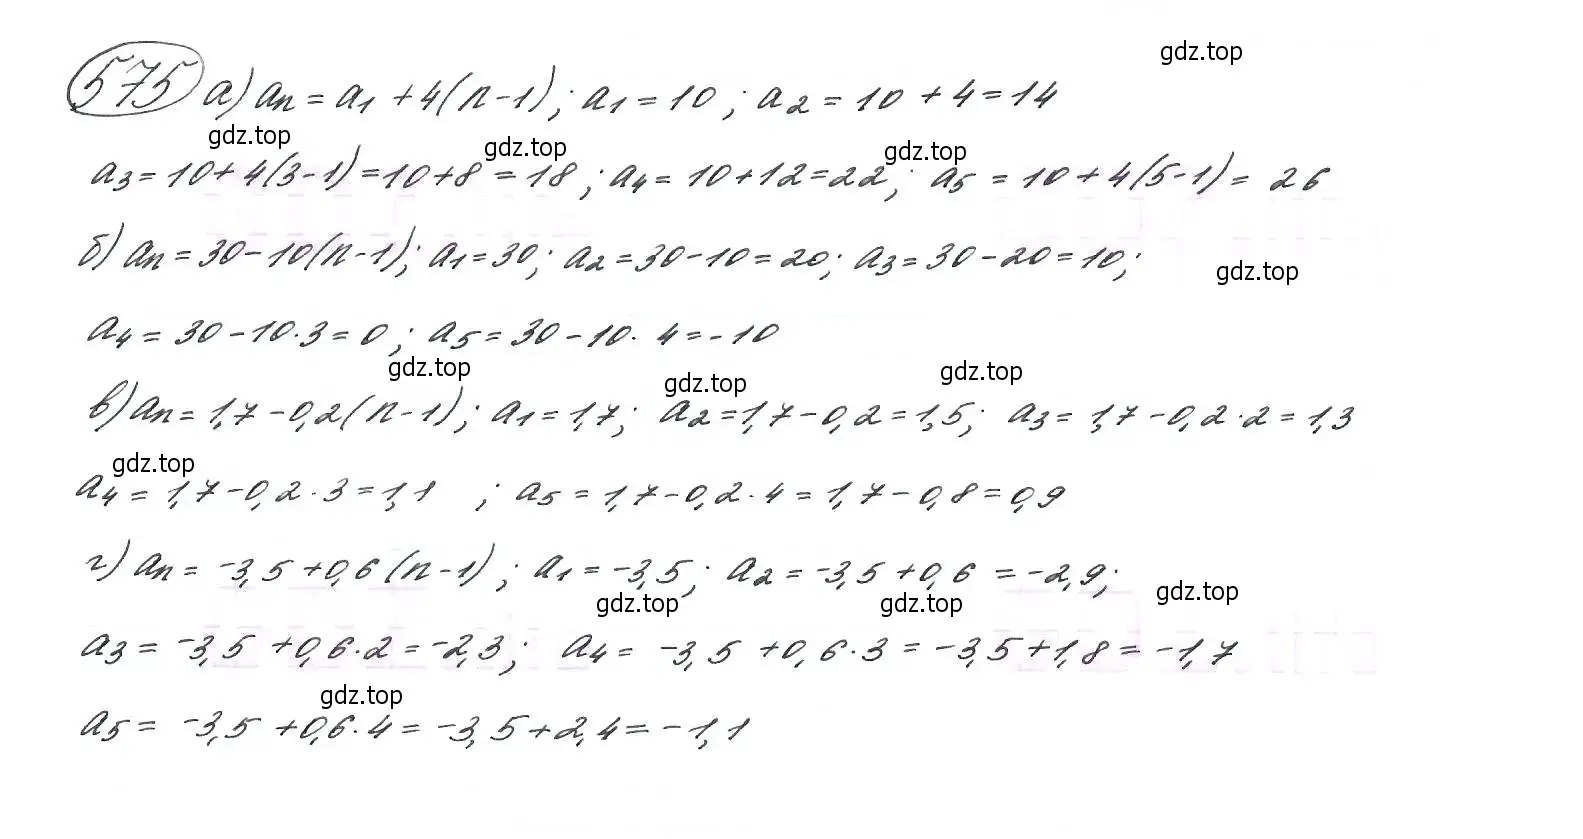 gdz.top
575 а) aₙ = a₁ + 4(n-1); a₁ = 10; a₂ = 10 + 4 = 14
gdz.top gdz.top gdz.top
a₃ = 10 + 4(3-1) = 10 + 8 = 18; a₄ = 10 + 12 = 22; a₅ = 10 + 4(5-1) = 26
б) aₙ = 30 - 10(n-1); a₁ = 30; a₂ = 30 - 10 = 20; a₃ = 30 - 20 = 10;
gdz.top
a₄ = 30 - 10·3 = 0; a₅ = 30 - 10·4 = -10
gdz.top gdz.top gdz.top
в) aₙ = 1,7 - 0,2(n-1); a₁ = 1,7; a₂ = 1,7 - 0,2 = 1,5; a₃ = 1,7 - 0,2·2 = 1,3
gdz.top
a₄ = 1,7 - 0,2·3 = 1,1 ; a₅ = 1,7 - 0,2·4 = 1,7 - 0,8 = 0,9
г) aₙ = -3,5 + 0,6(n-1); a₁ = -3,5; a₂ = -3,5 + 0,6 = -2,9;
gdz.top gdz.top gdz.top
a₃ = -3,5 + 0,6·2 = -2,3; a₄ = -3,5 + 0,6·3 = -3,5 + 1,8 = -1,7
gdz.top
a₅ = -3,5 + 0,6·4 = -3,5 + 2,4 = -1,1